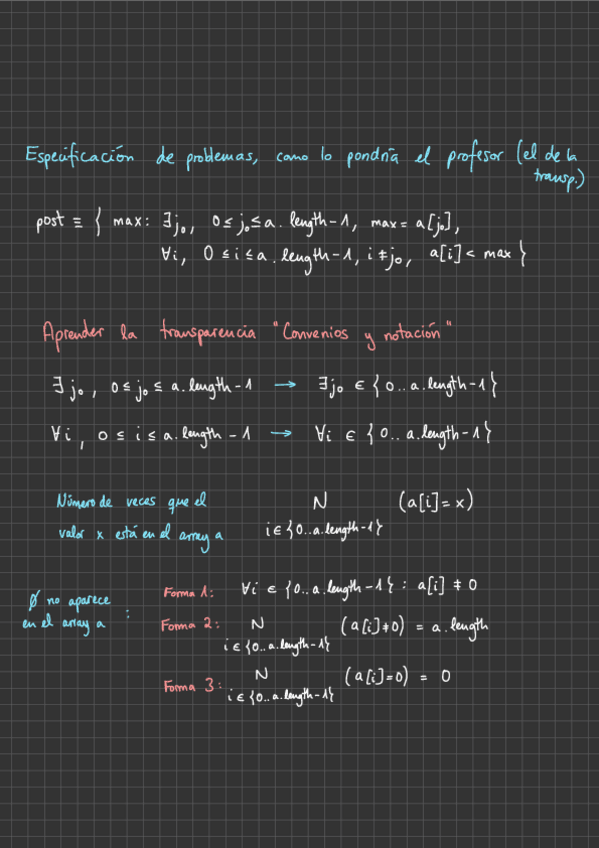 Especificación de problemas, como lo pondría el profesor (el de la
transp.)
post ≡ { max: ∃j₀, 0 ≤ j₀ ≤ a.length-1, max = a[j₀],
∀i, 0 ≤ i ≤ a.length-1, i ≠ j₀, a[i] < max }
Aprender la transparencia "Convenios y notación"
∃ j₀, 0 ≤ j₀ ≤ a.length-1 → ∃j₀ ∈ {0..a.length-1}
∀i, 0 ≤ i ≤ a.length-1 → ∀i ∈ {0..a.length-1}
Número de veces que el
valor x está en el array a
N (a[i]=x)
i ∈ {0..a.length-1}
0 no aparece
en el array a :
Forma 1: ∀i ∈ {0..a.length-1} : a[i] ≠ 0
Forma 2: N (a[i]≠0) = a.length
i ∈ {0..a.length-1}
Forma 3: N (a[i]=0) = 0
i ∈ {0..a.length-1}